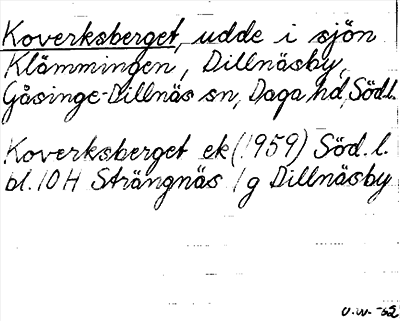 Koverksberget, udde i sjön
Klämmingen, Dillnäsby,
Gåsinge-Dillnäs sn, Daga hd, Södl.
Koverksberget ek (1959) Söd. l.
bl. 10 H Strängnäs 1 g Dillnäsby
U.W. -62